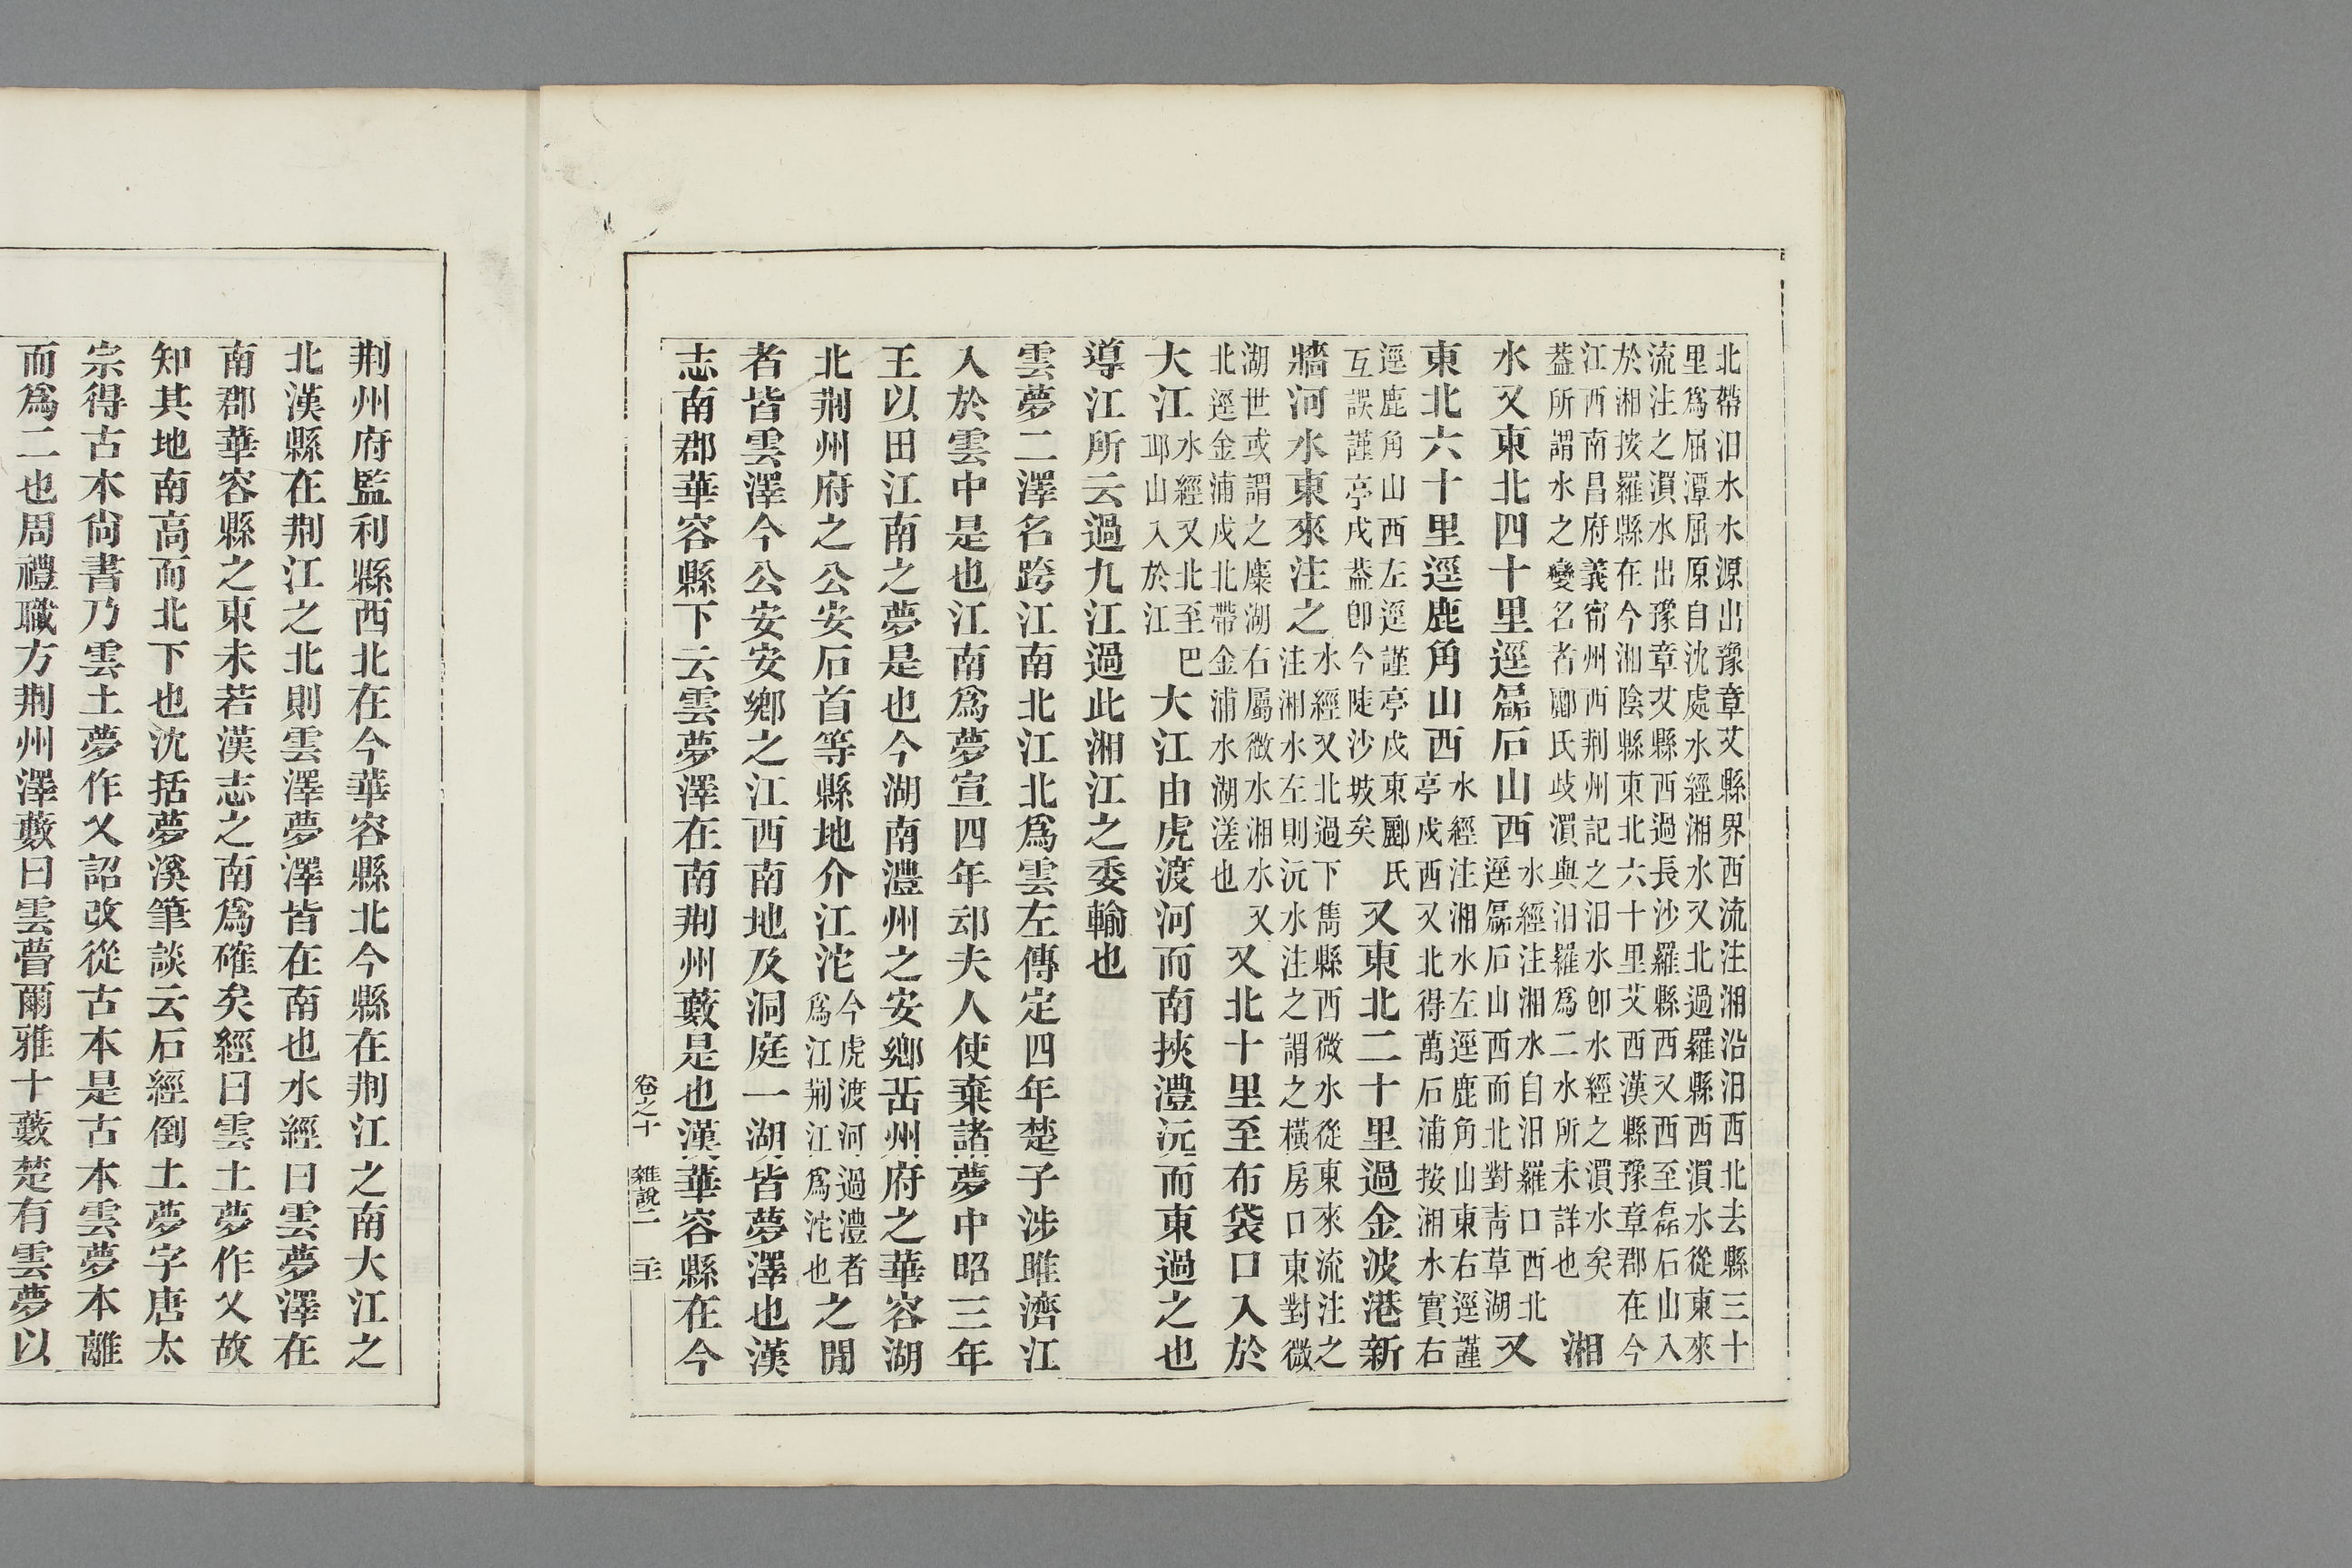 北帶汨水水源出豫章艾縣界西流注湘沿汨西北去縣三十
里爲屈潭屈原自沈處水經湘水又北過羅縣西㵋水從東來
流注之㵋水出豫章艾縣西過長沙羅縣西又西至磊石山入
於湘按羅縣在今湘陰縣東北六十里艾西漢縣豫章郡在今
江西南昌府義甯州西荆州記之汨水卽水經之㵋水矣
葢所謂水之變名者酈氏歧㵋與汨羅爲二水所未詳也
湘
水又東北四十里逕磊石山西
水經注湘水自汨羅口西北
逕磊石山西而北對靑草湖
又
東北六十里逕鹿角山西
水經注湘水左逕鹿角山東右逕謹
亭戍西又北得萬石浦按湘水實右
逕鹿角山西左逕謹亭戍東酈氏
互誤謹亭戍葢卽今陡沙坡矣
又東北二十里過金波港新
牆河水東來注之
水經又北過下雋縣西微水從東來流注之
注湘水左則沅水注之謂之橫房口東對微
湖世或謂之麋湖右屬微水湘水又
北逕金浦戍北帶金浦水湖溠也
又北十里至布袋口入於
大江
水經又北至巴
邱山入於江
大江由虎渡河而南挾澧沅而東過之也
導江所云過九江過此湘江之委輸也
雲夢二澤名跨江南北江北爲雲左傳定四年楚子涉雎濟江
入於雲中是也江南爲夢宣四年䢵夫人使棄諸夢中昭三年
王以田江南之夢是也今湖南澧州之安鄉岳州府之華容湖
北荆州府之公安石首等縣地介江沱
今虎渡河過澧者
爲江荆江爲沱也
之閒
者皆雲澤今公安安鄉之江西南地及洞庭一湖皆夢澤也漢
志南郡華容縣下云雲夢澤在南荆州藪是也漢華容縣在今
卷之十 雜說二 三十
荆州府監利縣西北在今華容縣北今縣在荆江之南大江之
北漢縣在荆江之北則雲澤夢澤皆在南也水經曰雲夢澤在
南郡華容縣之東未若漢志之南爲確矣經曰雲土夢作乂故
知其地南高而北下也沈括夢溪筆談云石經倒土夢字唐太
宗得古本尙書乃雲土夢作乂詔改從古本是古本雲夢本離
而爲二也周禮職方荆州澤藪曰雲瞢爾雅十藪楚有雲夢以